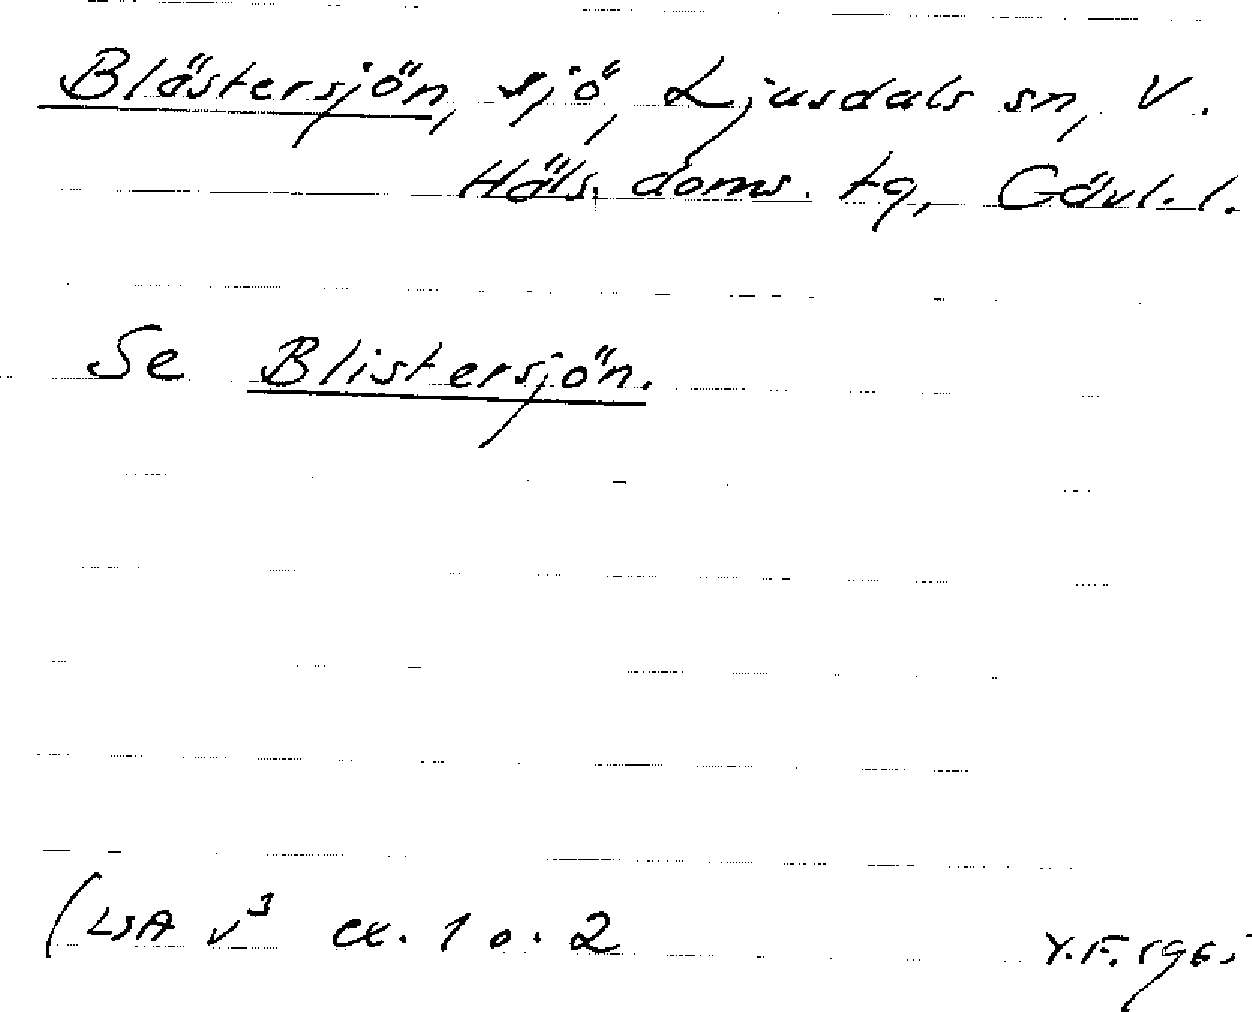 Blästersjön, sjö, Ljusdals sn, V.
Häls. doms. tg, Gävl. l.
Se Blistersjön.
(LSA V³ ex. 1 o. 2
Y.F. 196